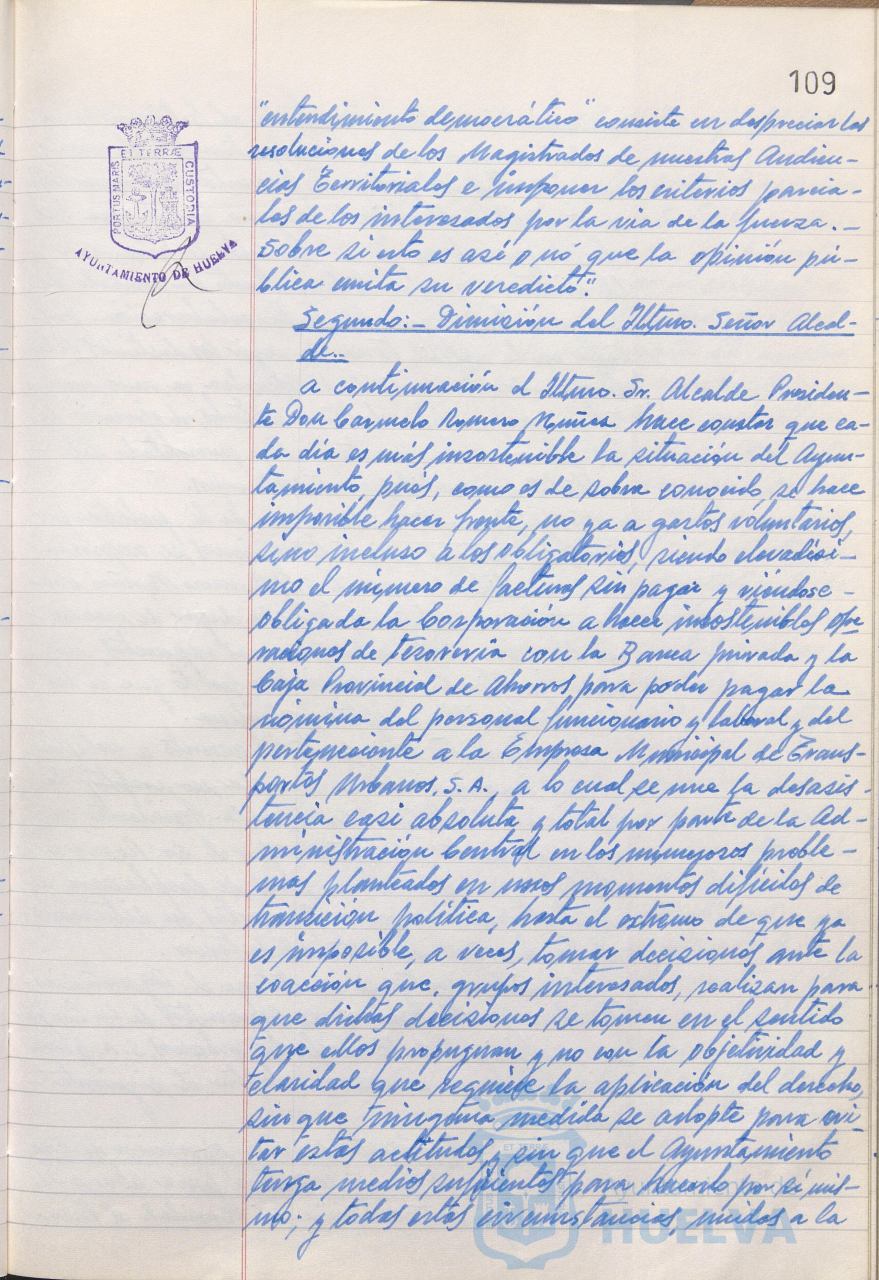 109
PORTUS MARIS ET TERRÆ CUSTODIA
AYUNTAMIENTO DE HUELVA
"entendimiento democrático" consiste en despreciar las
resoluciones de los Magistrados de nuestras Audien-
cias Territoriales e imponer los criterios parcia-
les de los interesados por la via de la fuerza.-
Sobre si esto es asé o nó que la opinión pú-
blica emita su veredictó".
Segundo:- Dimisión del Iltmo. Señor Alcal-
de.-
a continuación el Iltmo. Sr. Alcalde Presiden-
te Don Carmelo Romero Muñoz hace constar que ca-
da día es más insostenible la situación del Ayun-
tamiento, pues, como es de sobra conocido, se hace
imposible hacer frente, no ya a gastos voluntarios,
sino incluso a los obligatorios, siendo elevadísi-
mo el número de facturas sin pagar y viéndose-
obligada la Corporación a hacer insostenibles ope-
raciones de tesorería con la Banca privada y la
Caja Provincial de Ahorros para poder pagar la
nómina del personal funcionario y laboral y del
perteneciente a la Empresa Municipal de Trans-
portes Urbanos, S.A., a lo cual se une la desasis-
tencia casi absoluta y total por parte de la Ad-
ministración Central en los numerosos proble-
mas planteados en unos momentos difíciles de
transición política, hasta el extremo de que ya
es imposible, a veces, tomar decisiones ante la
coacción que, grupos interesados, realizan para
que dichas decisiones se tomen en el sentido
que ellos propugnan y no con la objetividad y
claridad que requiere la aplicación del derecho,
sin que ninguna medida se adopte para evi-
tar estas actitudes y sin que el Ayuntamiento
tenga medios suficientes para hacerlo por sí mis-
mo; y todas estas circunstancias, unidas a la
HUELVA